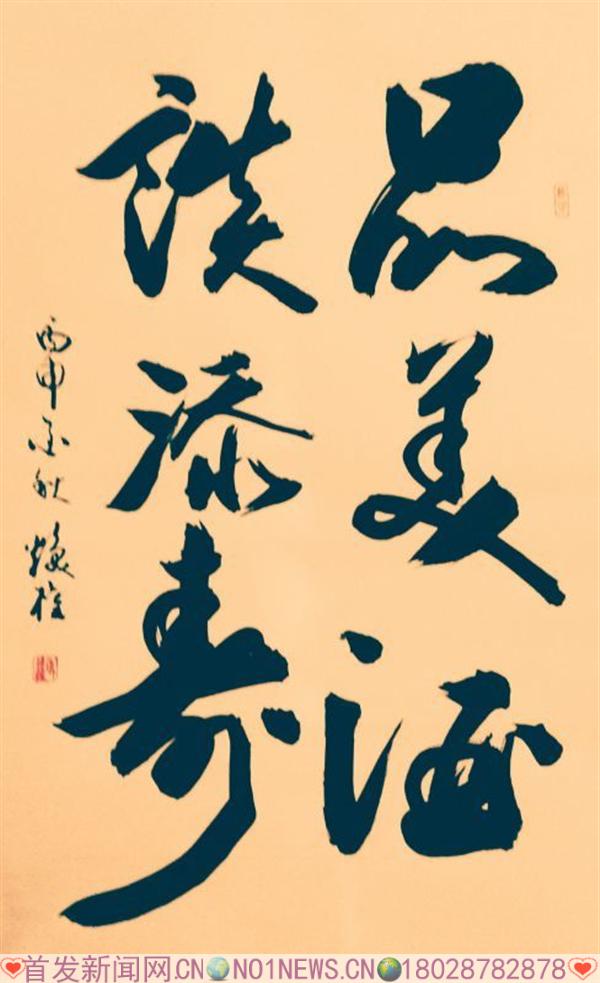 品美酒
谈添寿
丙申金秋
首发新闻网.CN NO1NEWS.CN 18028782878